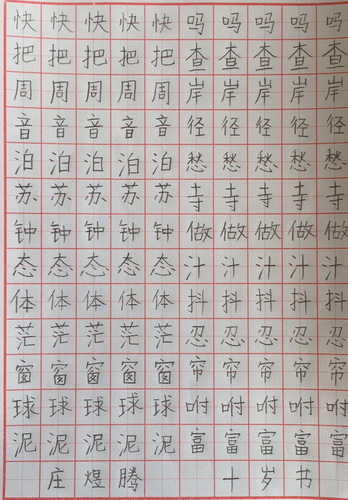 快快快快快吗吗吗吗吗
把把把把把查查查查查
周周周周周岸岸岸岸岸
音音音音音径径径径径
泊泊泊泊泊愁愁愁愁愁
苏苏苏苏苏寺寺寺寺寺
钟钟钟钟钟做做做做做
态态态态态汁汁汁汁汁
体体体体体抖抖抖抖抖
茫茫茫茫茫忍忍忍忍忍
窗窗窗窗窗帘帘帘帘帘
球球球球球咐咐咐咐咐
泥泥泥泥泥富富富富富
庄煜腾 十岁书